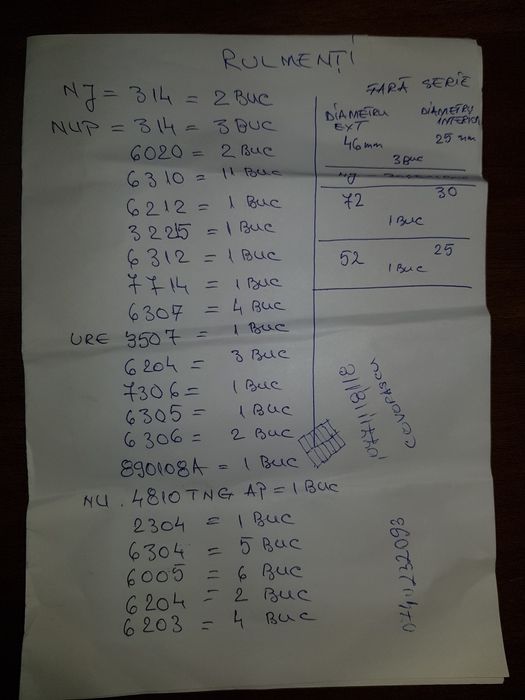 RULMENȚI
NJ = 314 = 2 BUC
NUP = 314 = 3 BUC
6020 = 2 BUC
6310 = 11 BUC
6212 = 1 BUC
3225 = 1 BUC
6312 = 1 BUC
7714 = 1 BUC
6307 = 4 BUC
URE 3507 = 1 BUC
6204 = 3 BUC
7306 = 1 BUC
6305 = 1 BUC
6306 = 2 BUC
890108A = 1 BUC
NU. 4810 TNG AP = 1 BUC
2304 = 1 BUC
6304 = 5 BUC
6005 = 6 BUC
6204 = 2 BUC
6203 = 4 BUC
FARĂ SERIE
DIAMETRU EXT
DIAMETRU INTERIOR
46 mm 25 mm
3 BUC
72 30
1 BUC
52 25
1 BUC